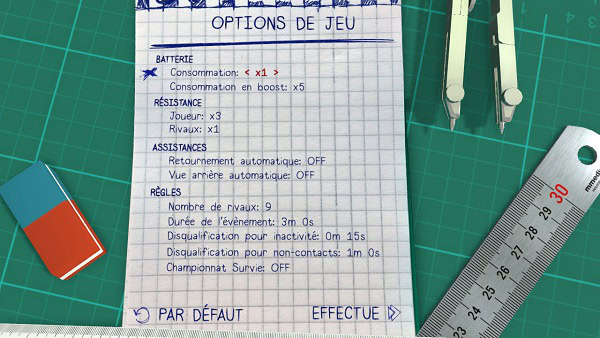 OPTIONS DE JEU
BATTERIE
Consommation: < x1 >
Consommation en boost: x5
RÉSISTANCE
Joueur: x3
Rivaux: x1
ASSISTANCES
Retournement automatique: OFF
Vue arrière automatique: OFF
RÈGLES
Nombre de rivaux: 9
Durée de l'évènement: 3m 0s
Disqualification pour inactivité: 0m 15s
Disqualification pour non-contacts: 1m 0s
Championnat Survie: OFF
PAR DÉFAUT
EFFECTUE
30
29
28
27
26
25
24
23